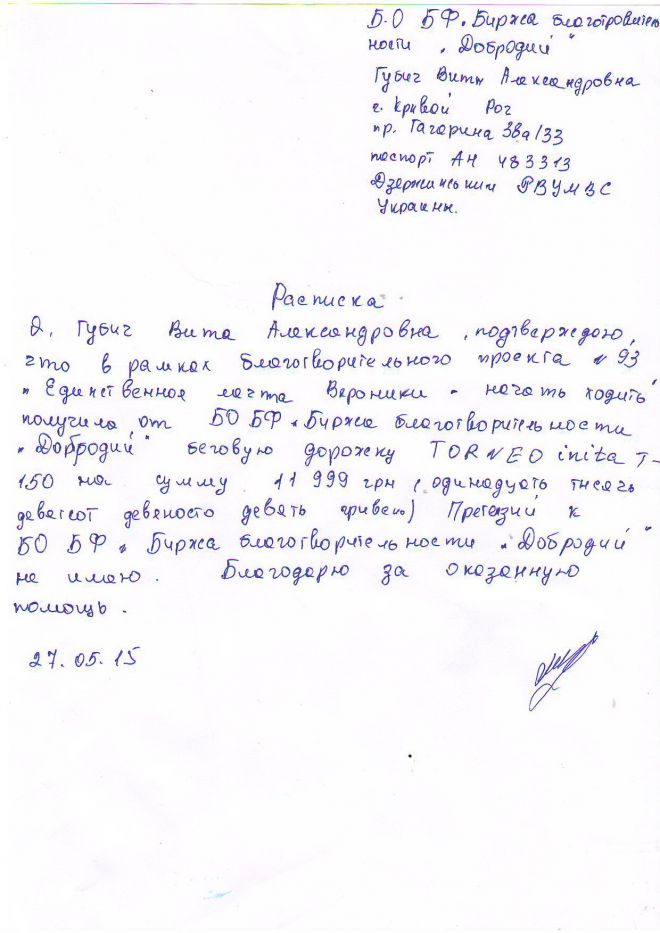 Б.О БФ "Биржа благотворитель
ности "Добродий"
Губич Виты Александровна
г. Кривой Рог
пр. Гагарина 38а/33
паспорт АН 483313
Дзержинським РВУМВС
Украины.
Расписка
Я, Губич Вита Александровна, подтверждаю,
что в рамках благотворительного проекта №93
"Единственная мечта Вероники - начать ходить"
получила от БО БФ "Биржа благотворительности
"Добродий" беговую дорожку TORNEO inita T-
150 на сумму 11 999 грн (одинадцать тысяч
девятсот девяносто девять гривень) Претезий к
БО БФ "Биржа благотворительности "Добродий"
не имею. Благодарю за оказанную
помощь.
27.05.15